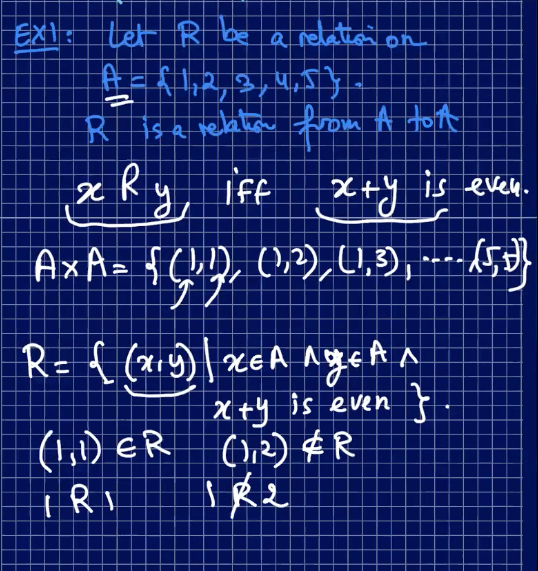 EX1: Let R be a relation on
A = {1,2,3,4,5}.
R is a relation from A to A
x R y, iff x+y is even.
A×A = {(1,1), (1,2), (1,3), ..... (5,5)}
R = { (x,y) | x∈A ∧ y∈A ∧
x+y is even }.
(1,1) ∈ R (1,2) ∉ R
1 R 1 1 R̸ 2